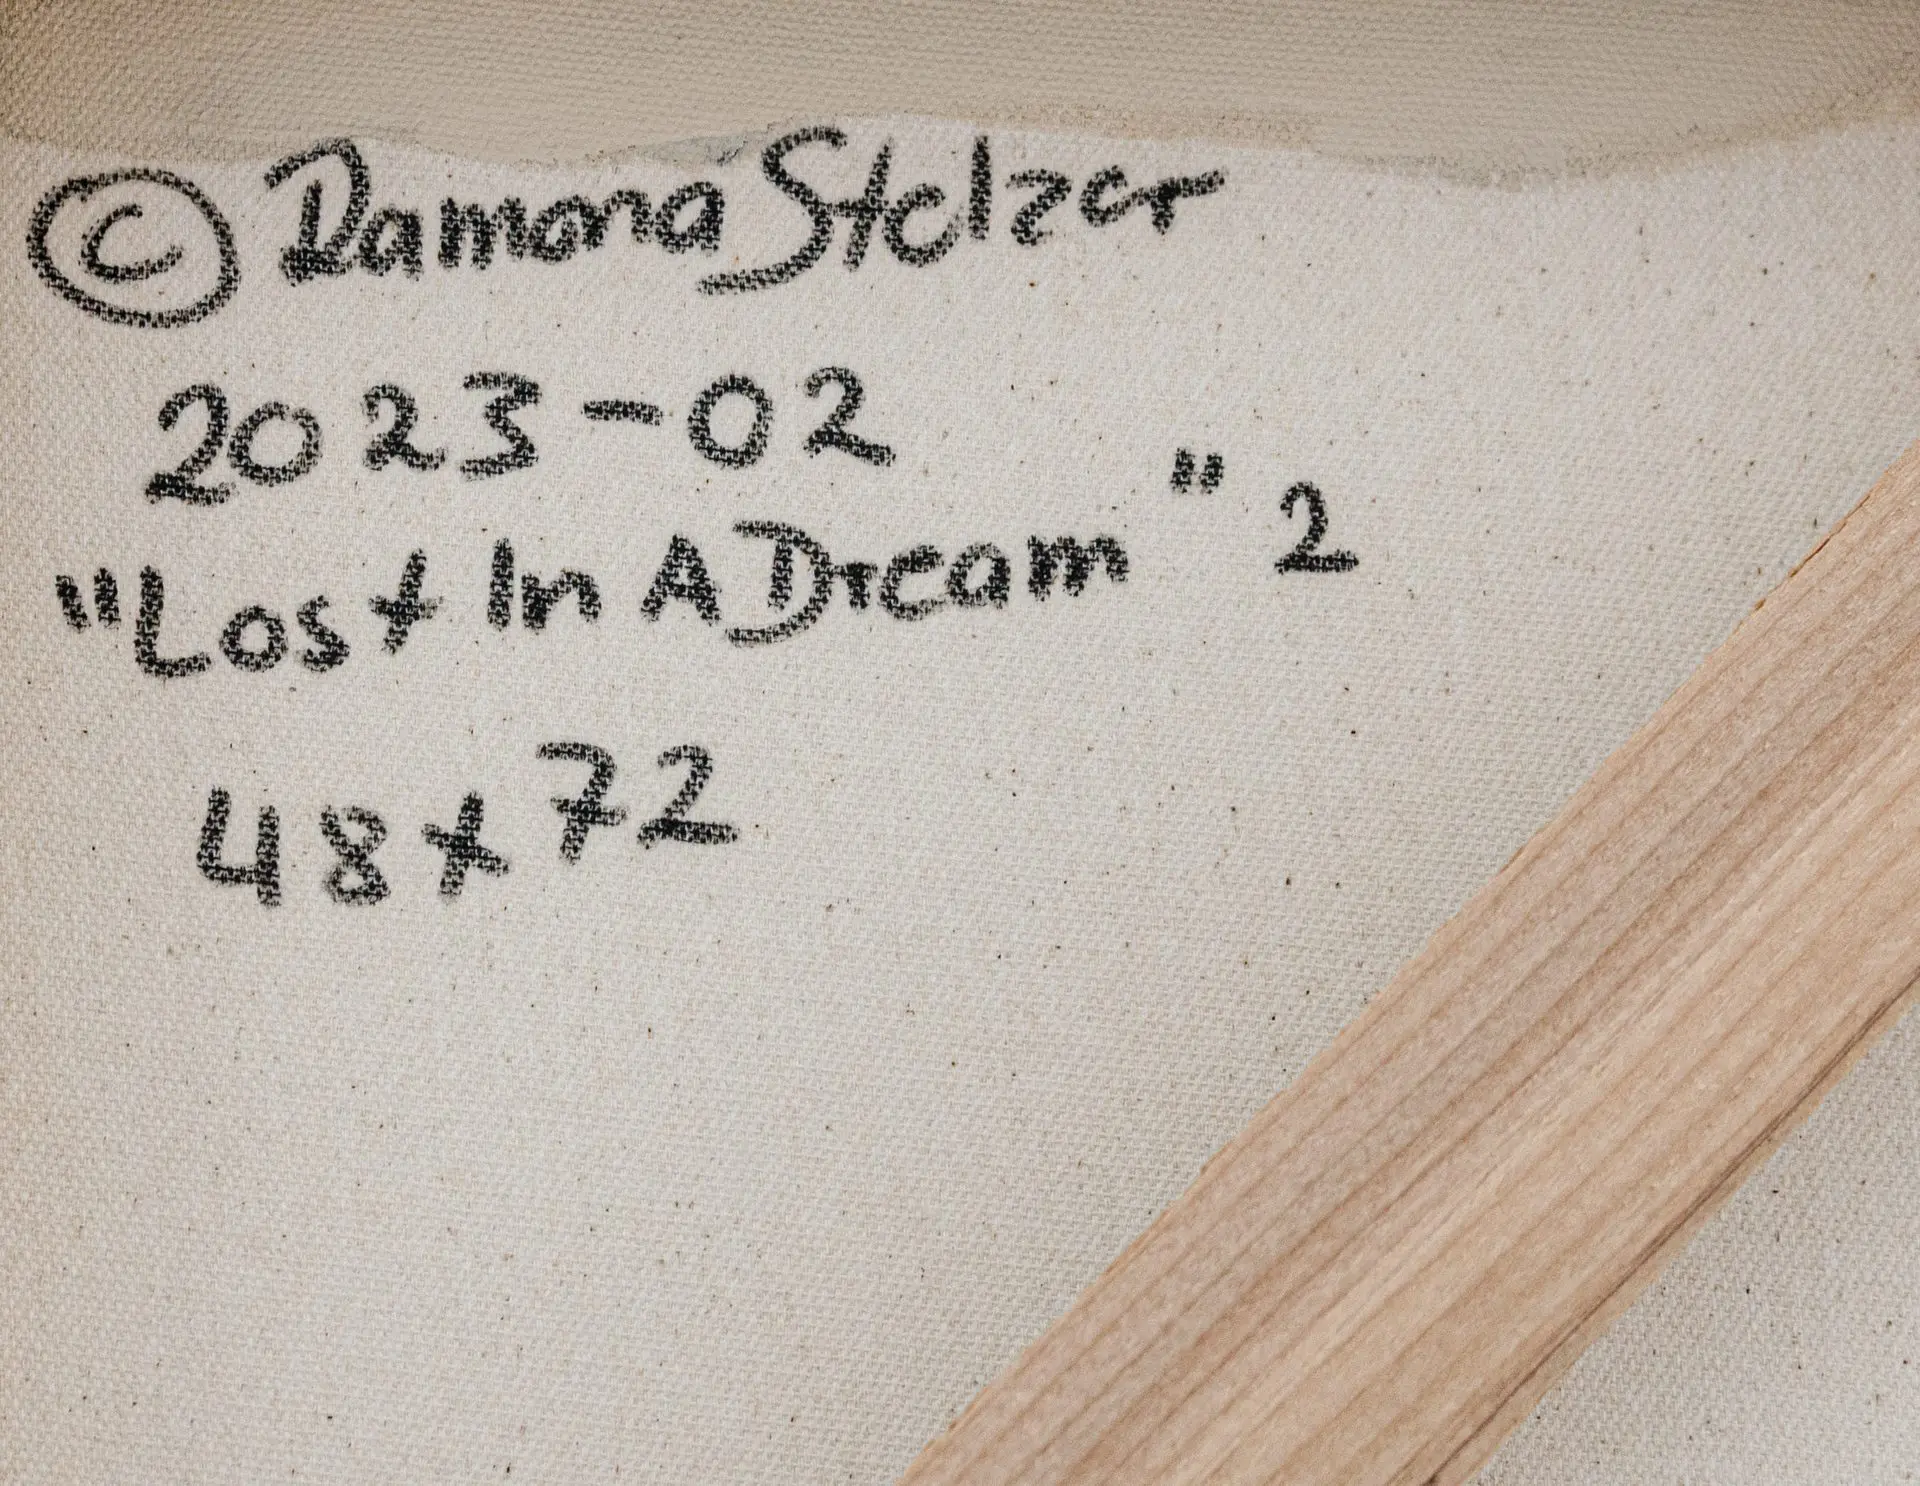 © Ramona Stelzer
2023-02
"Lost In A Dream" 2
48x72